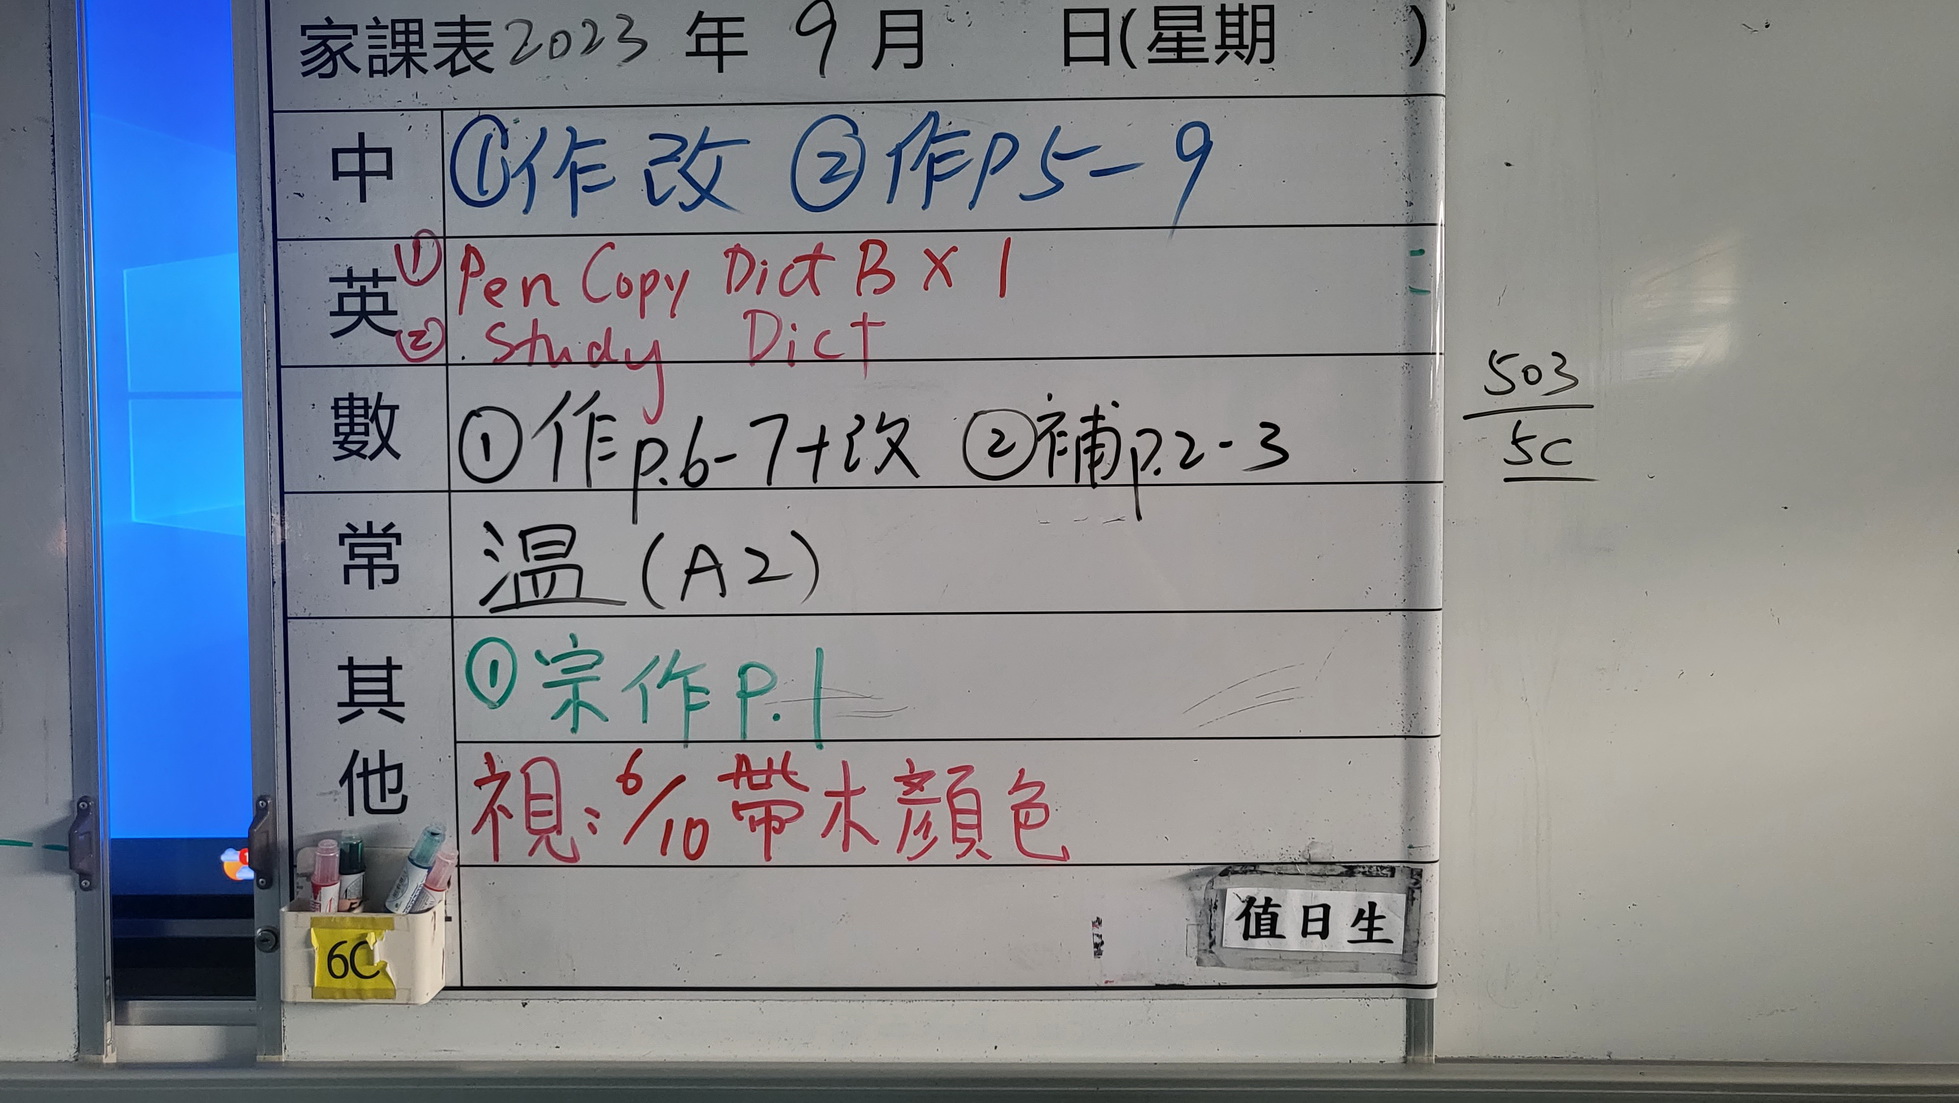 家課表2023年 9月 日(星期 )
中 ①作改 ②作P5-9
英 ①Pen Copy Dict B X 1
②Study Dict
數 ①作p.6-7+改 ②補p.2-3
503
5C
常 温(A2)
其他 ①宗作P.1
視:6/10帶木顏色
值日生
6C